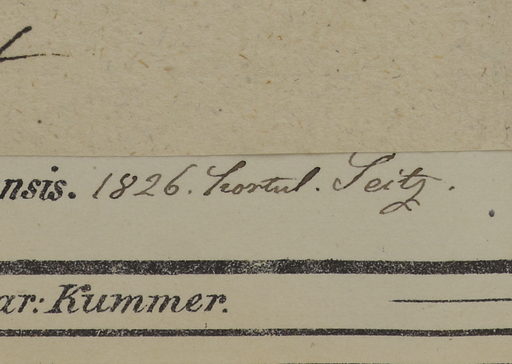 nsis. 1826. hortul. Seitz.
ar: Kummer.